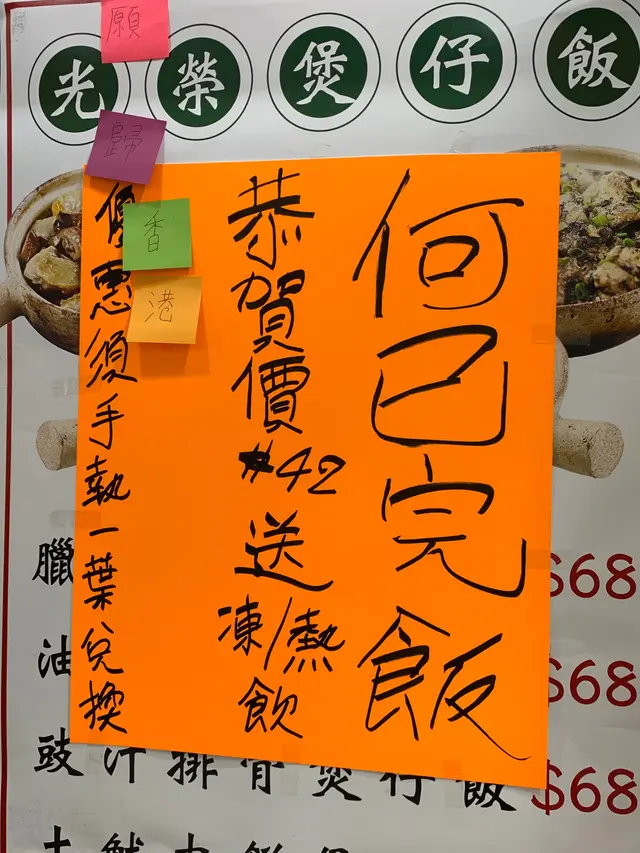 光榮煲仔飯
願
歸
香
港
何已完飯
恭賀價#42送凍/熱飲
優惠須手執一葉兌換
臘 $68
油 $68
豉汁排骨煲仔飯 $68